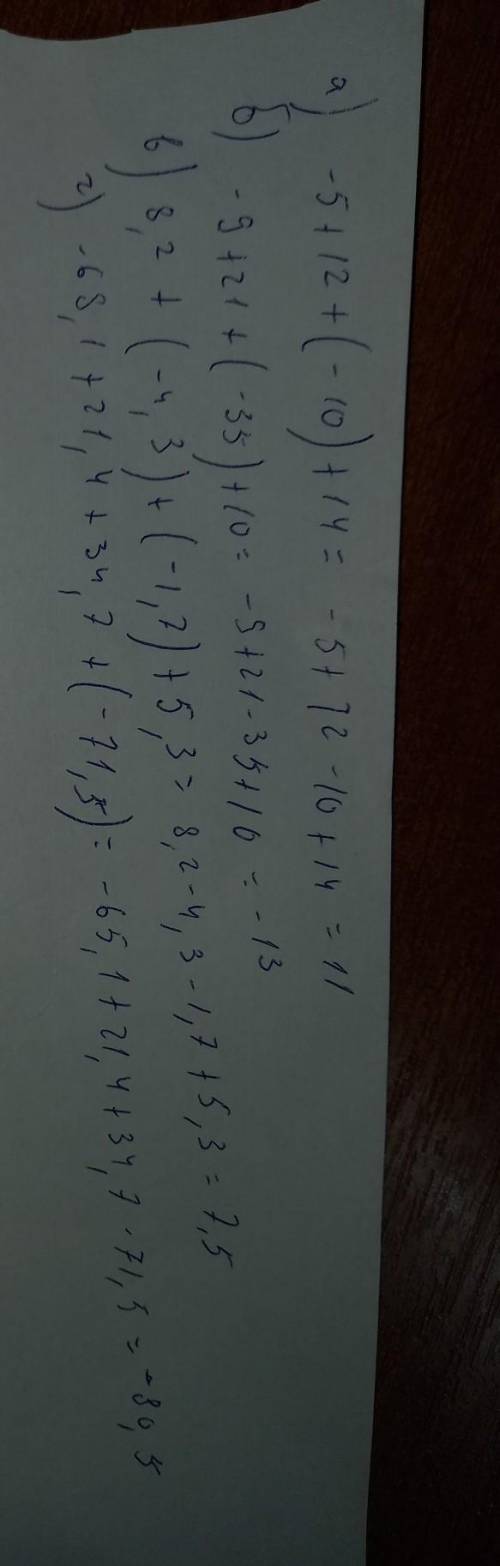 а) -5+12+(-10)+14= -5+12-10+14=11
б) -9+21+(-35)+10= -9+21-35+10=-13
в) 8,2+(-4,3)+(-1,7)+5,3=8,2-4,3-1,7+5,3=7,5
г) -65,1+21,4+34,7+(-71,5)=-65,1+21,4+34,7-71,5=-80,5